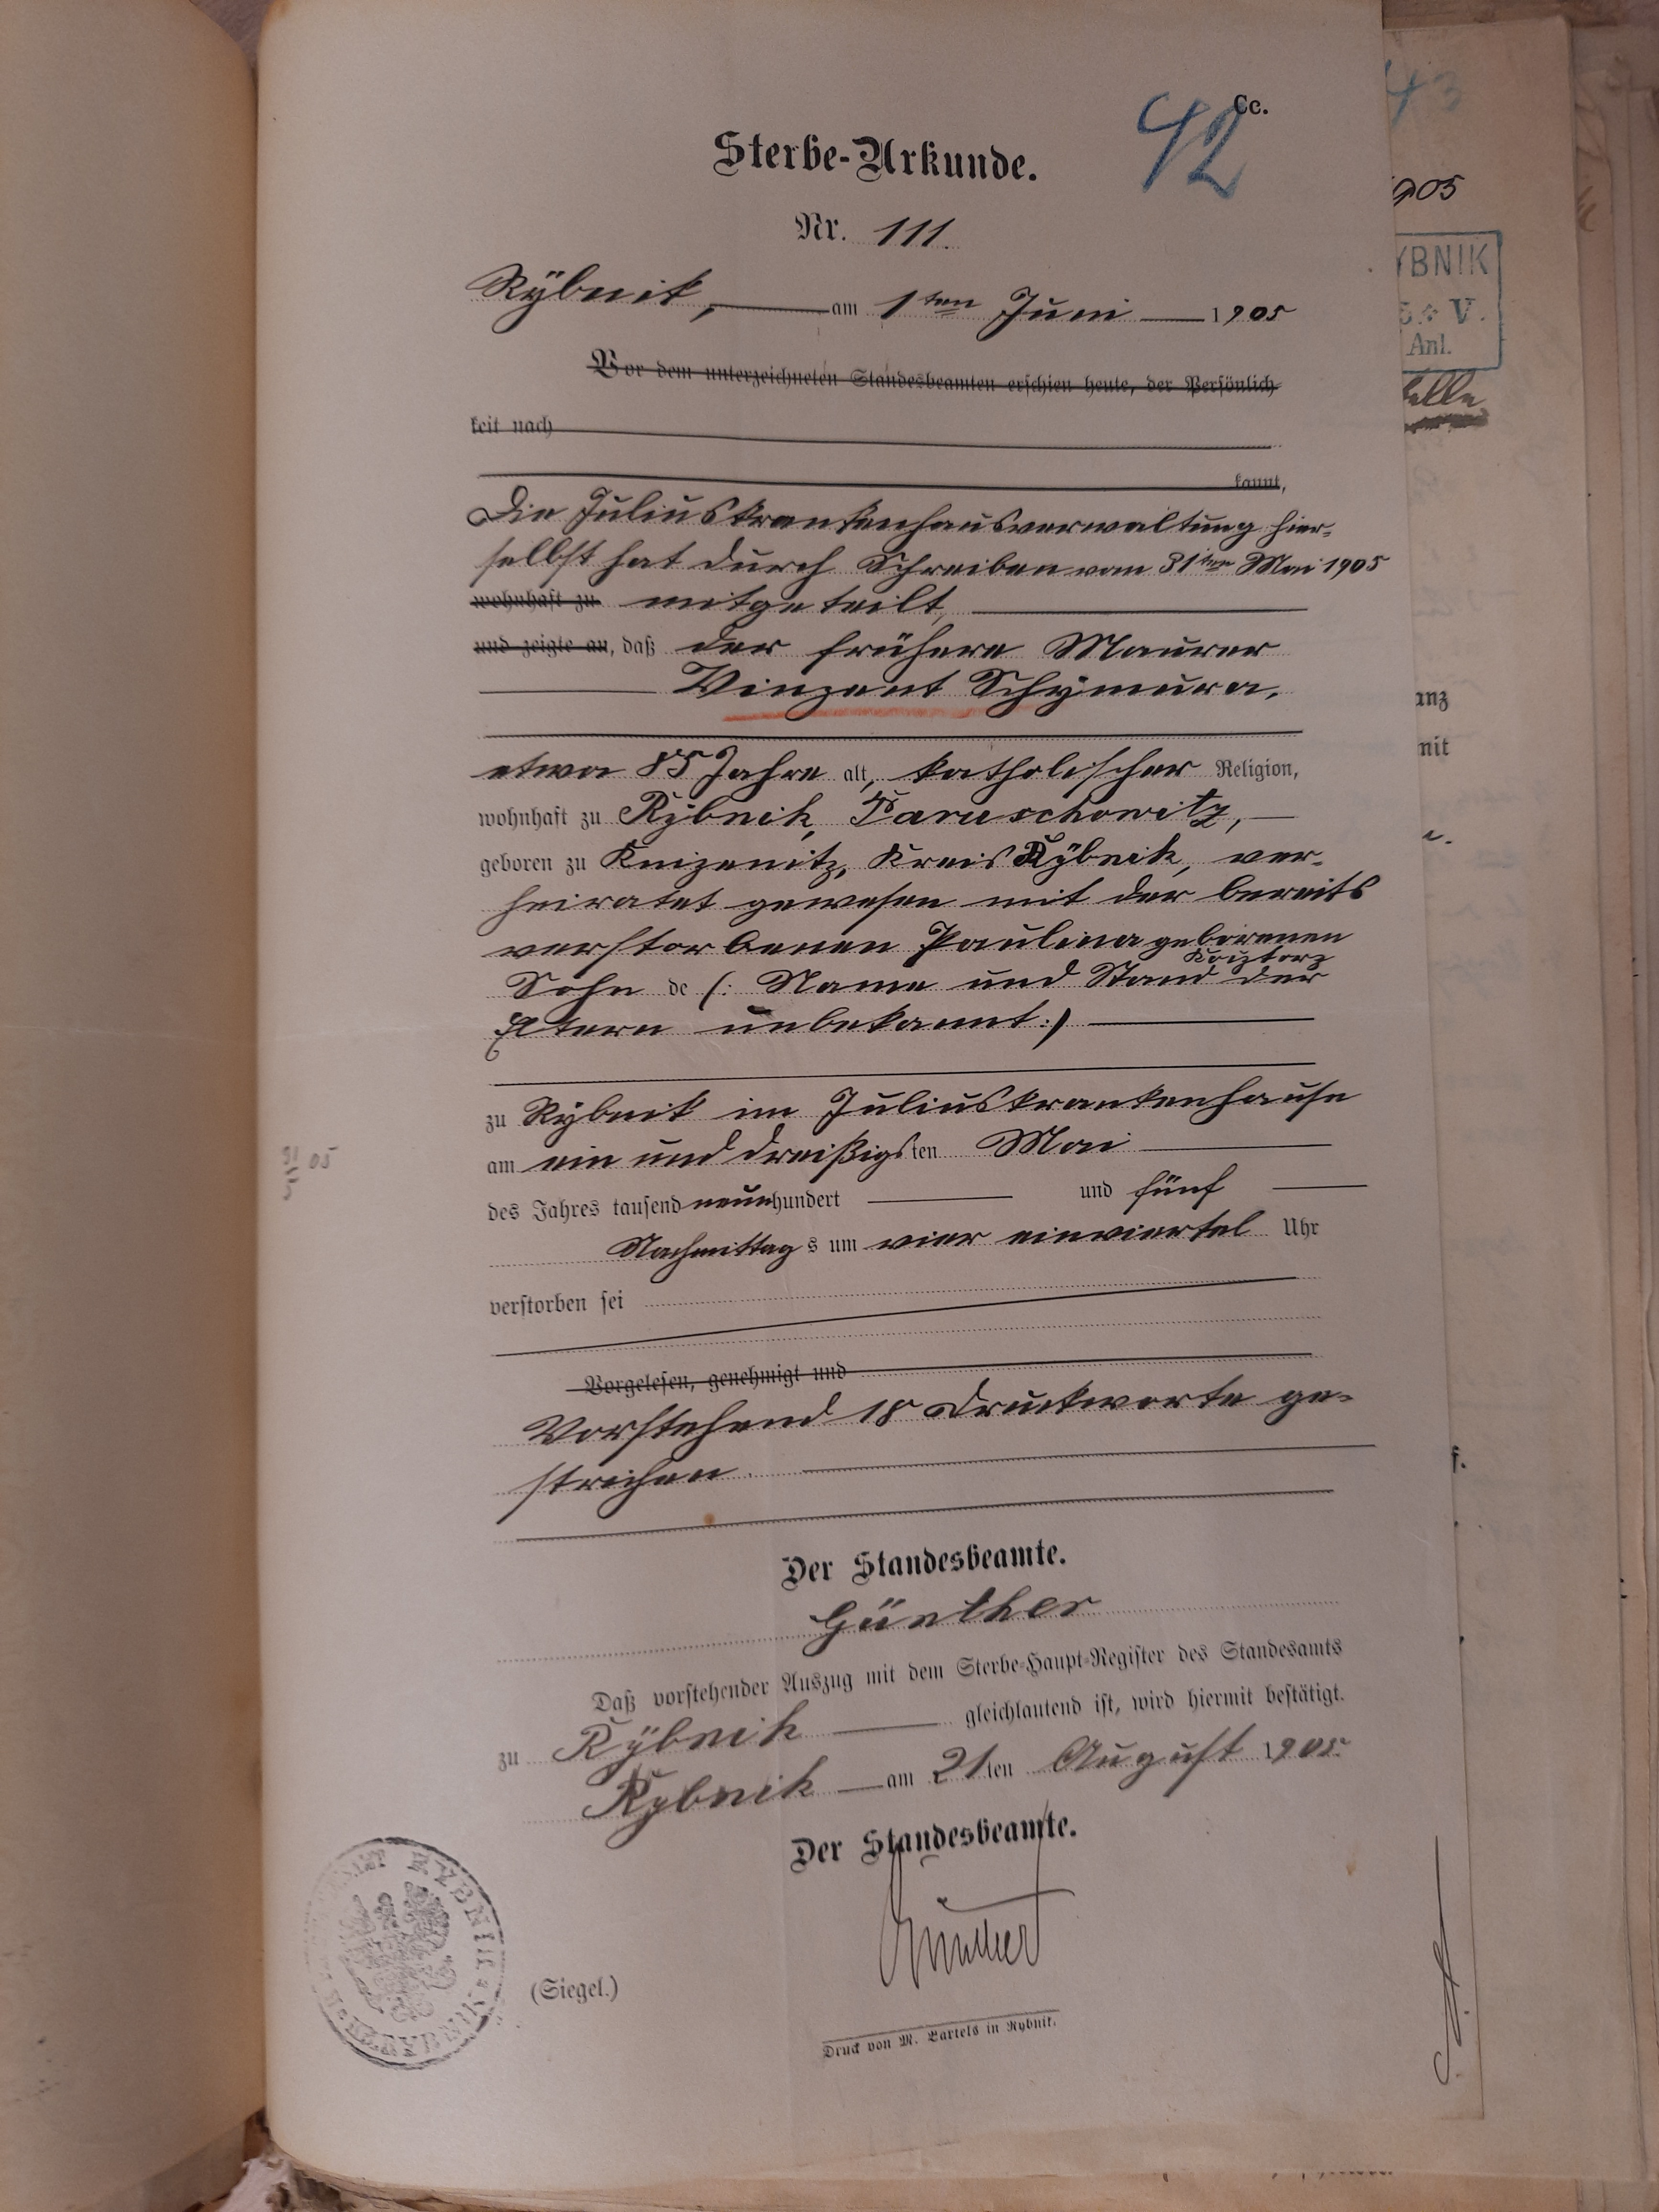 42
Cc.
Sterbe-Urkunde.
Nr. 111.
Rÿbnik, am 1ten Juni 1905
Vor dem unterzeichneten Standesbeamten erschien heute, der Persönlich-
keit nach
kannt,
Die Juliuskrankenhausverwaltung hier-
selbst hat durch Schreiben vom 31ten Mai 1905
wohnhaft zu mitgeteilt,
und zeigte an, daß der frühere Maurer
Vinzent Schÿmura,
etwa 85 Jahre alt, katholischer Religion,
wohnhaft zu Rÿbnik, Paruschowitz,
geboren zu Knizenitz, Kreis Rÿbnik, ver-
heiratet gewesen mit der bereits
verstorbenen Paulina geborenen
Sohn de (: Name und Stand der
Eltern unbekannt :)
zu Rÿbnik im Juliuskrankenhause
am ein und dreißigsten Mai
des Jahres tausend neunhundert und fünf
Nachmittags um vier einviertel Uhr
verstorben sei
Vorgelesen, genehmigt und
Vorstehend 18 Druckworte ge-
strichen.
Der Standesbeamte.
Günther
Daß vorstehender Auszug mit dem Sterbe-Haupt-Register des Standesamts
zu Rÿbnik gleichlautend ist, wird hiermit bestätigt.
Rybnik am 21ten August 1905.
Der Standesbeamte.
(Siegel.)
Druck von M. Bartels in Rybnik.
31/5 05
43
905
YBNIK
V.
Anl.
anz
mit
RYBNIK